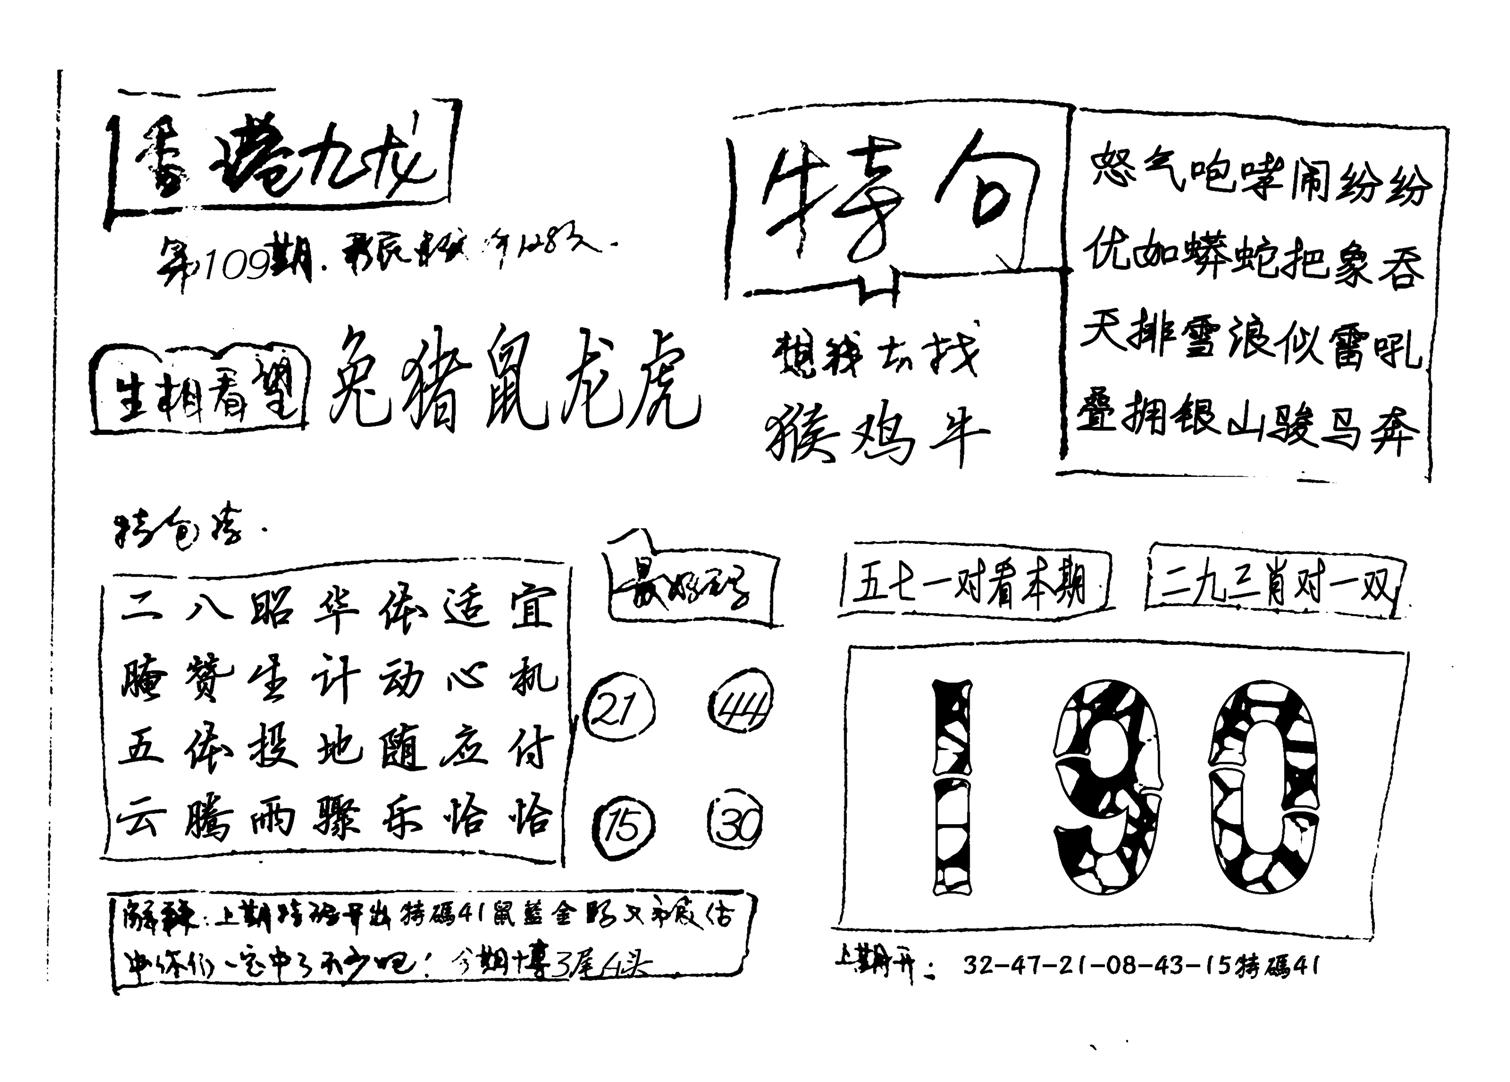 香港九龙
第109期.
生相看望
兔猪鼠龙虎
特句
想我去找
猴鸡牛
怒气咆哮闹纷纷
优如蟒蛇把象吞
天排雪浪似雷吼
叠拥银山骏马奔
二八昭华体适宜
腌赞生计动心机
五体投地随应付
云腾雨骤乐恰恰
最好码
21 44
15 30
五七一对看本期
二九三肖对一双
190
解:上期特码开出特碼41鼠藍金
你们一定中了不少吧!今期博3尾4头
上期开: 32-47-21-08-43-15特碼41